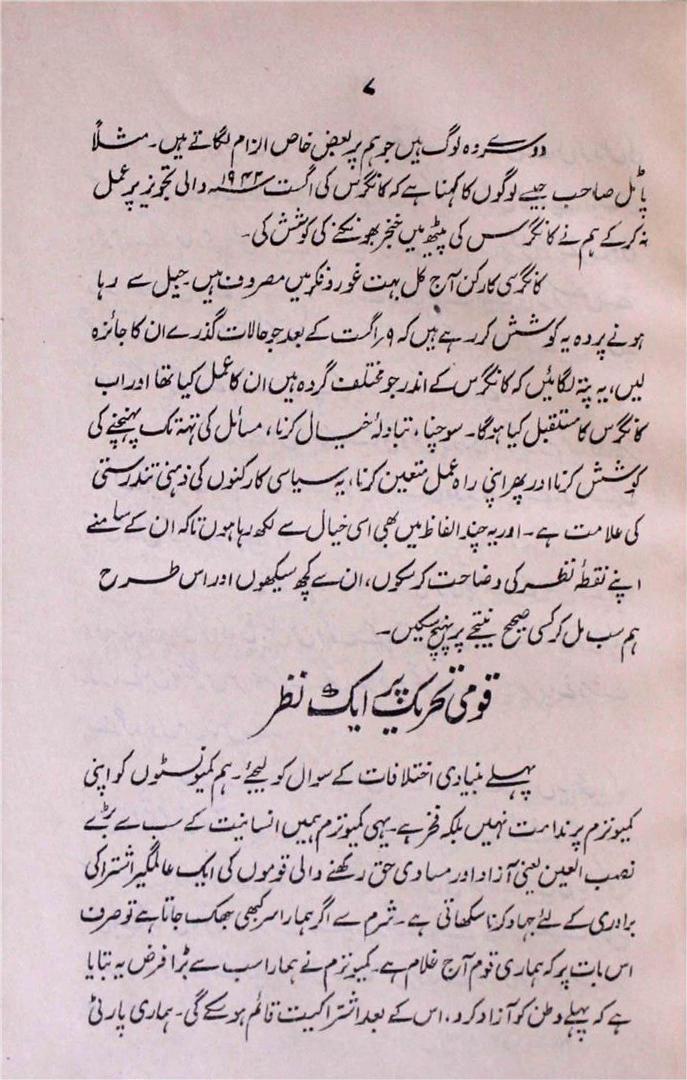 ۷
دوسرے وہ لوگ ہیں جو ہم پر بعض خاص الزام لگاتے ہیں۔ مثلاً
پاٹل صاحب جیسے لوگوں کا کہنا ہے کہ کانگرس کی اگست ۱۹۴۲ء والی تجویز پر عمل
نہ کر کے ہم نے کانگرس کی پیٹھ میں خنجر بھونکنے کی کوشش کی۔
کانگرسی کارکن آج کل بہت غور و فکر میں مصروف ہیں۔ جیل سے رہا
ہونے پر وہ یہ کوشش کر رہے ہیں کہ ۹؍ اگست کے بعد جو حالات گذرے ان کا جائزہ
لیں، یہ پتہ لگائیں کہ کانگرس کے اندر جو مختلف گروہ ہیں ان کا عمل کیا تھا اور اب
کانگرس کا مستقبل کیا ہوگا۔ سوچنا، تبادلۂ خیال کرنا، مسائل کی تہہ تک پہنچنے کی
کوشش کرنا اور پھر اپنی راہ عمل متعین کرنا، یہ سیاسی کارکنوں کی ذہنی تندرستی
کی علامت ہے۔ اور یہ چند الفاظ میں بھی اسی خیال سے لکھ رہا ہوں تاکہ ان کے سامنے
اپنے نقطۂ نظر کی وضاحت کر سکوں، ان سے کچھ سیکھوں اور اس طرح
ہم سب مل کر کسی صحیح نتیجے پر پہنچ سکیں۔
قومی تحریک پر ایک نظر
پہلے بنیادی اختلافات کے سوال کو لیجئے۔ ہم کمیونسٹوں کو اپنی
کمیونزم پر ندامت نہیں بلکہ فخر ہے۔ یہی کمیونزم ہمیں انسانیت کے سب سے بڑے
نصب العین یعنی آزاد اور مساوی حق رکھنے والی قوموں کی ایک عالمگیر اشتراکی
برادری کے لئے جہاد کرنا سکھاتی ہے۔ شرم سے اگر ہمارا سر کبھی جھک جاتا ہے تو صرف
اس بات پر کہ ہماری قوم آج غلام ہے۔ کمیونزم نے ہمارا سب سے بڑا فرض یہ بتایا
ہے کہ پہلے وطن کو آزاد کرو، اس کے بعد اشتراکیت قائم ہو سکے گی۔ ہماری پارٹی